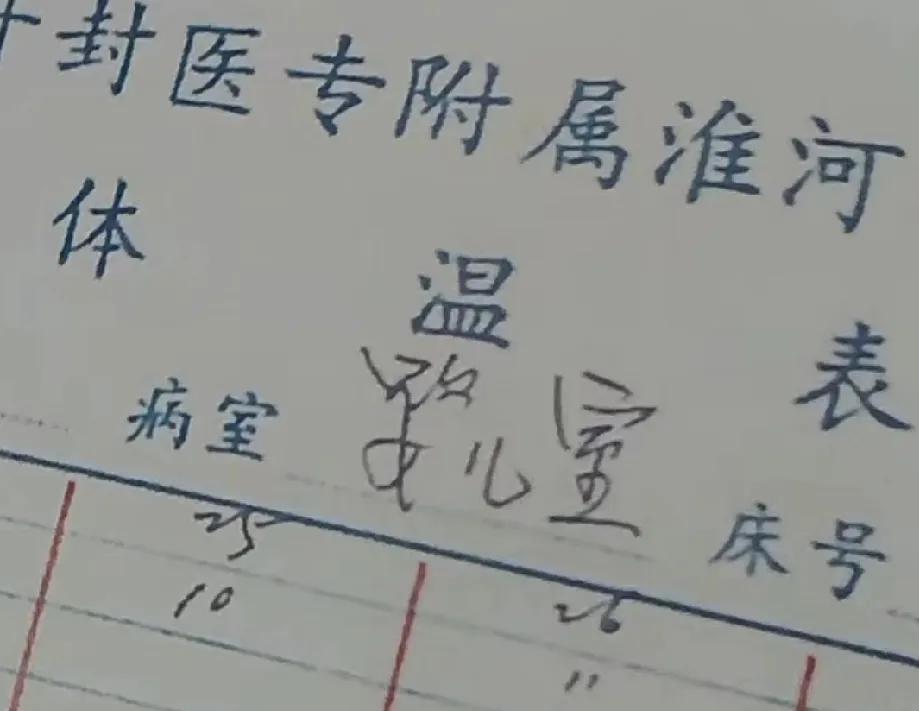 封医专附属淮河
体 温 表
病室 婴儿室 床号
25 26
10 11